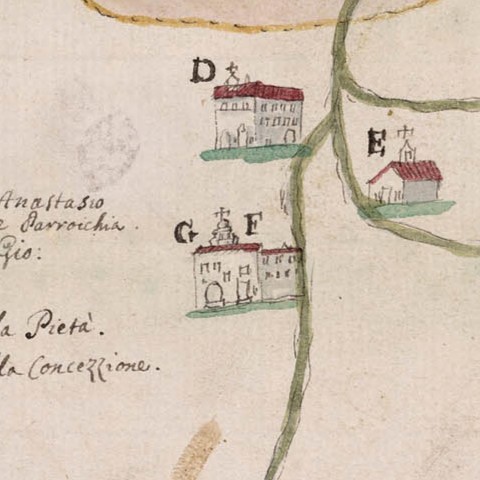 D
E
Anastasio
e Parroichia.
G F
la Pietà.
la Concezzione.